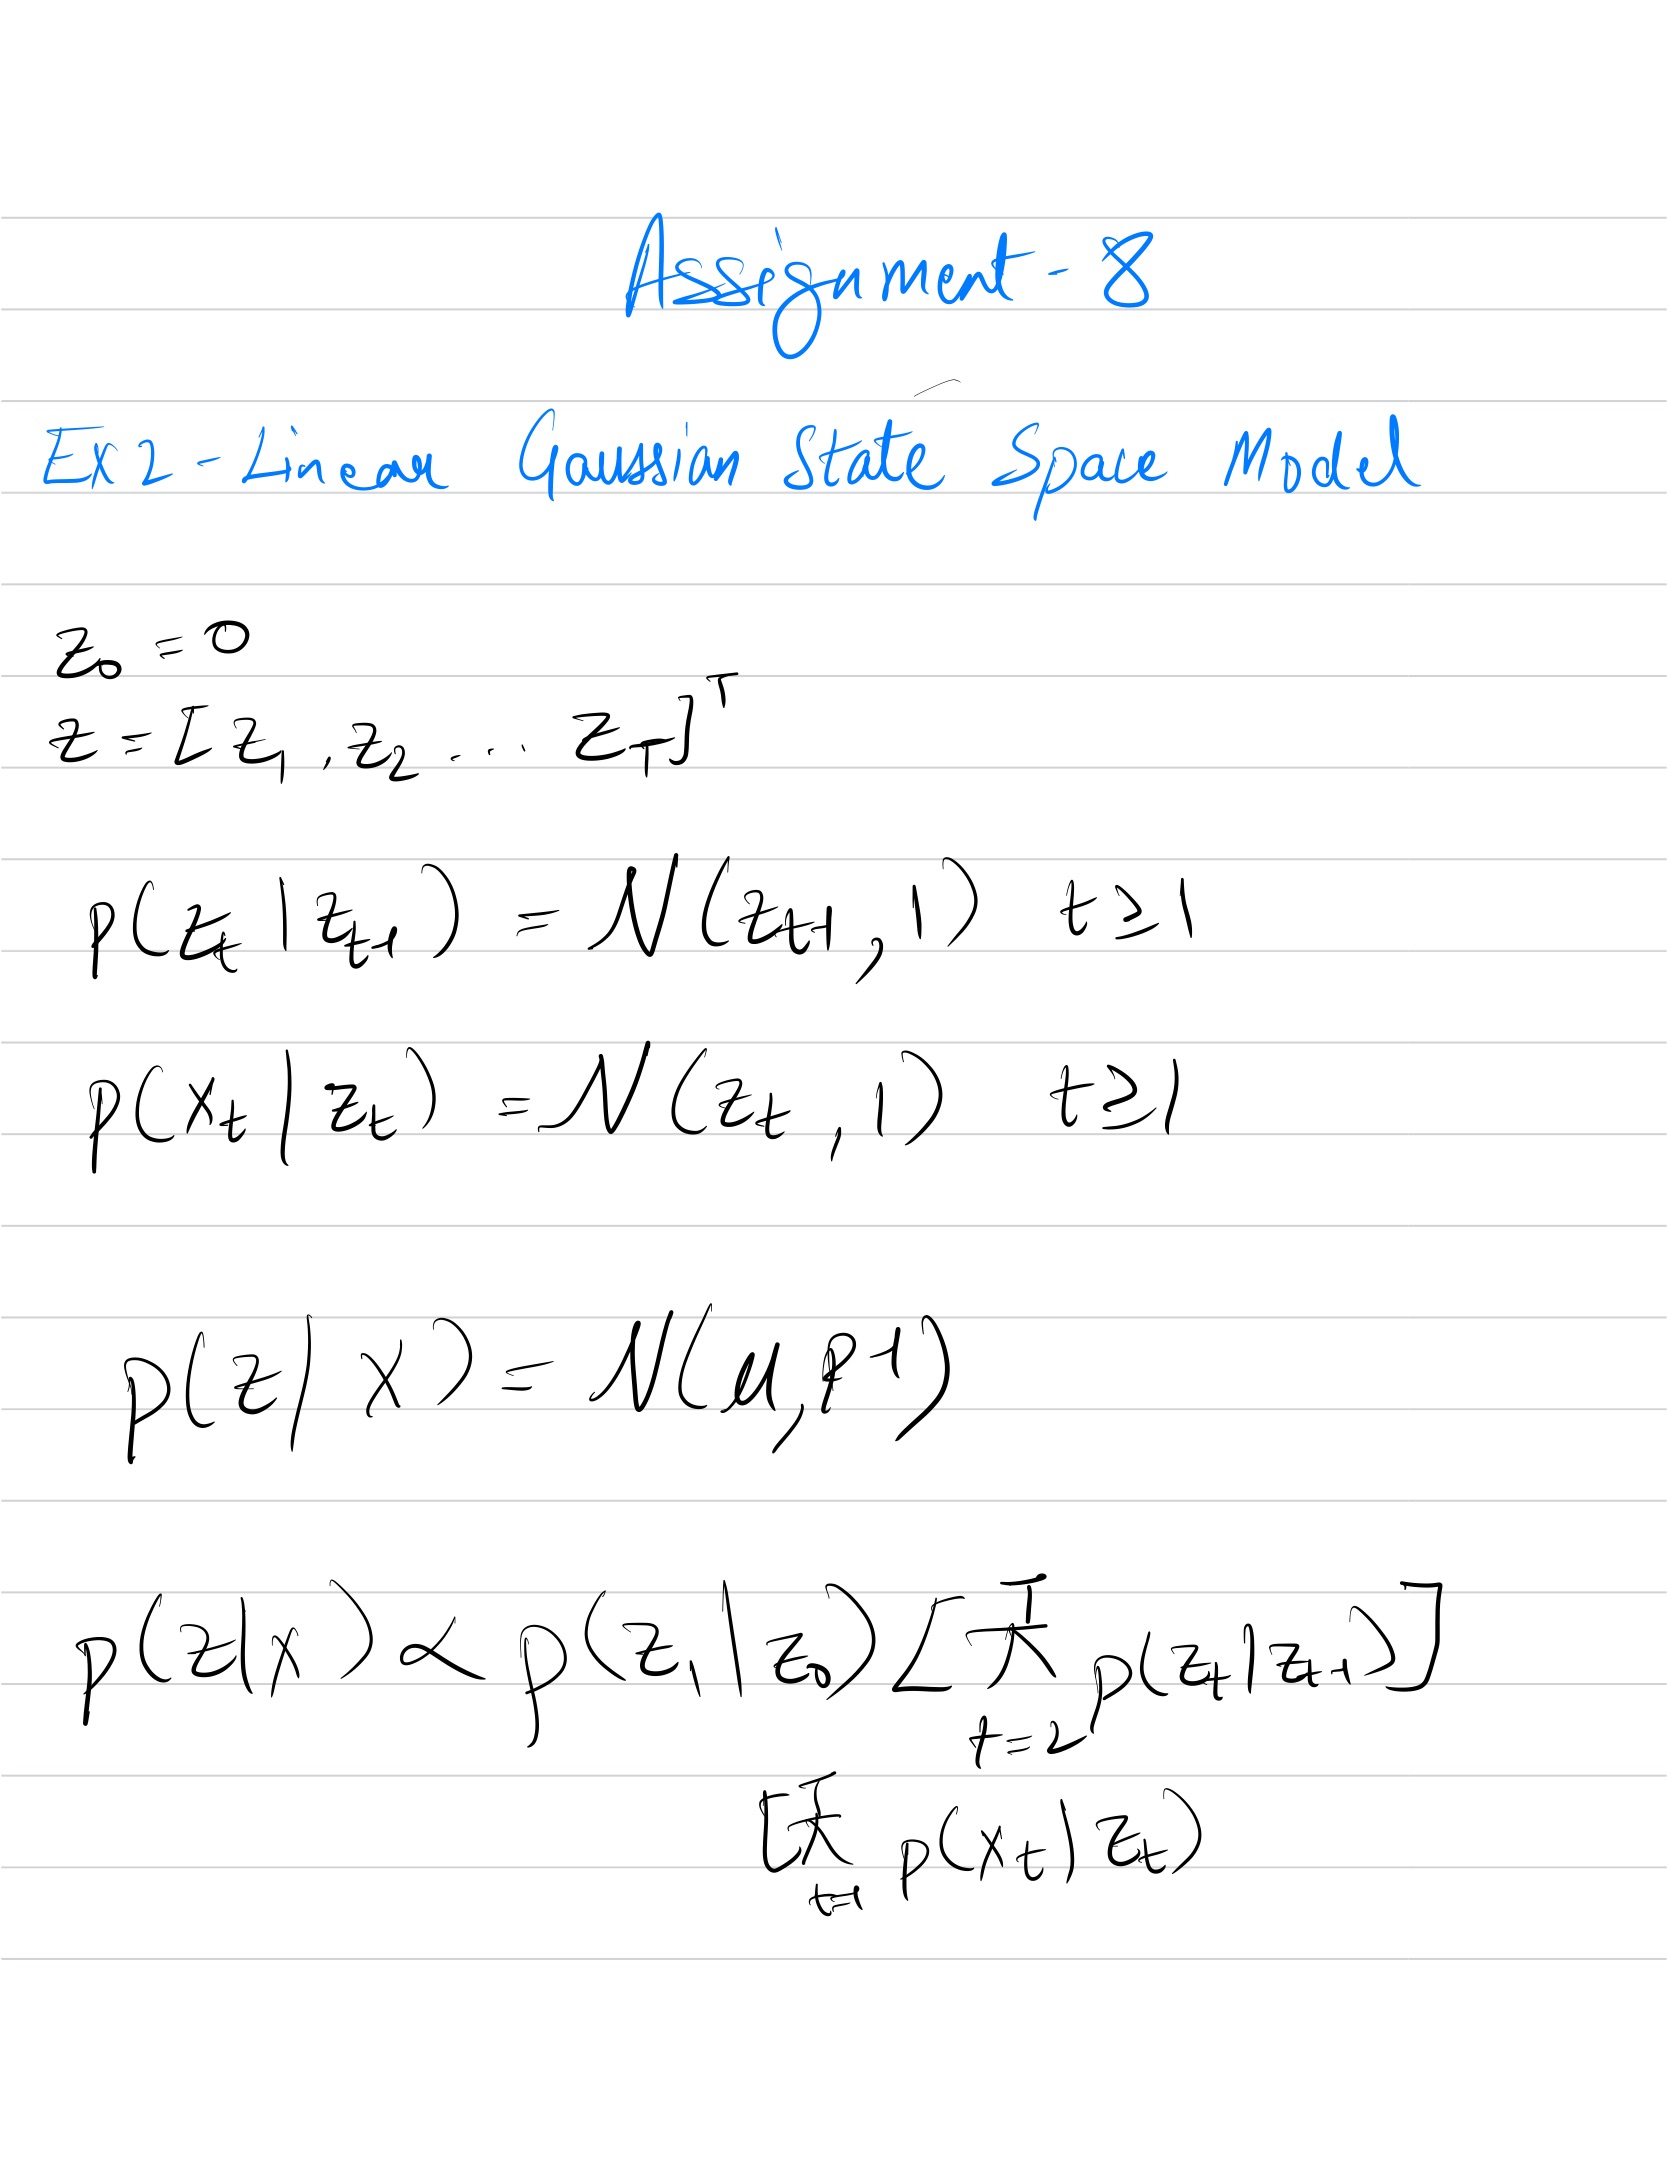 Assignment - 8
Ex 2 - Linear Gaussian State Space Model
z₀ = 0
z = [z₁, z₂ ... z_T]ᵀ
p(z_t | z_{t-1}) = N(z_{t-1}, 1) t ≥ 1
p(x_t | z_t) = N(z_t, 1) t ≥ 1
p(z | x) = N(μ, P⁻¹)
p(z|x) ∝ p(z₁ | z₀) [∏_{t=2}^{T} p(z_t | z_{t-1})]
[∏_{t=1}^{T} p(x_t | z_t)